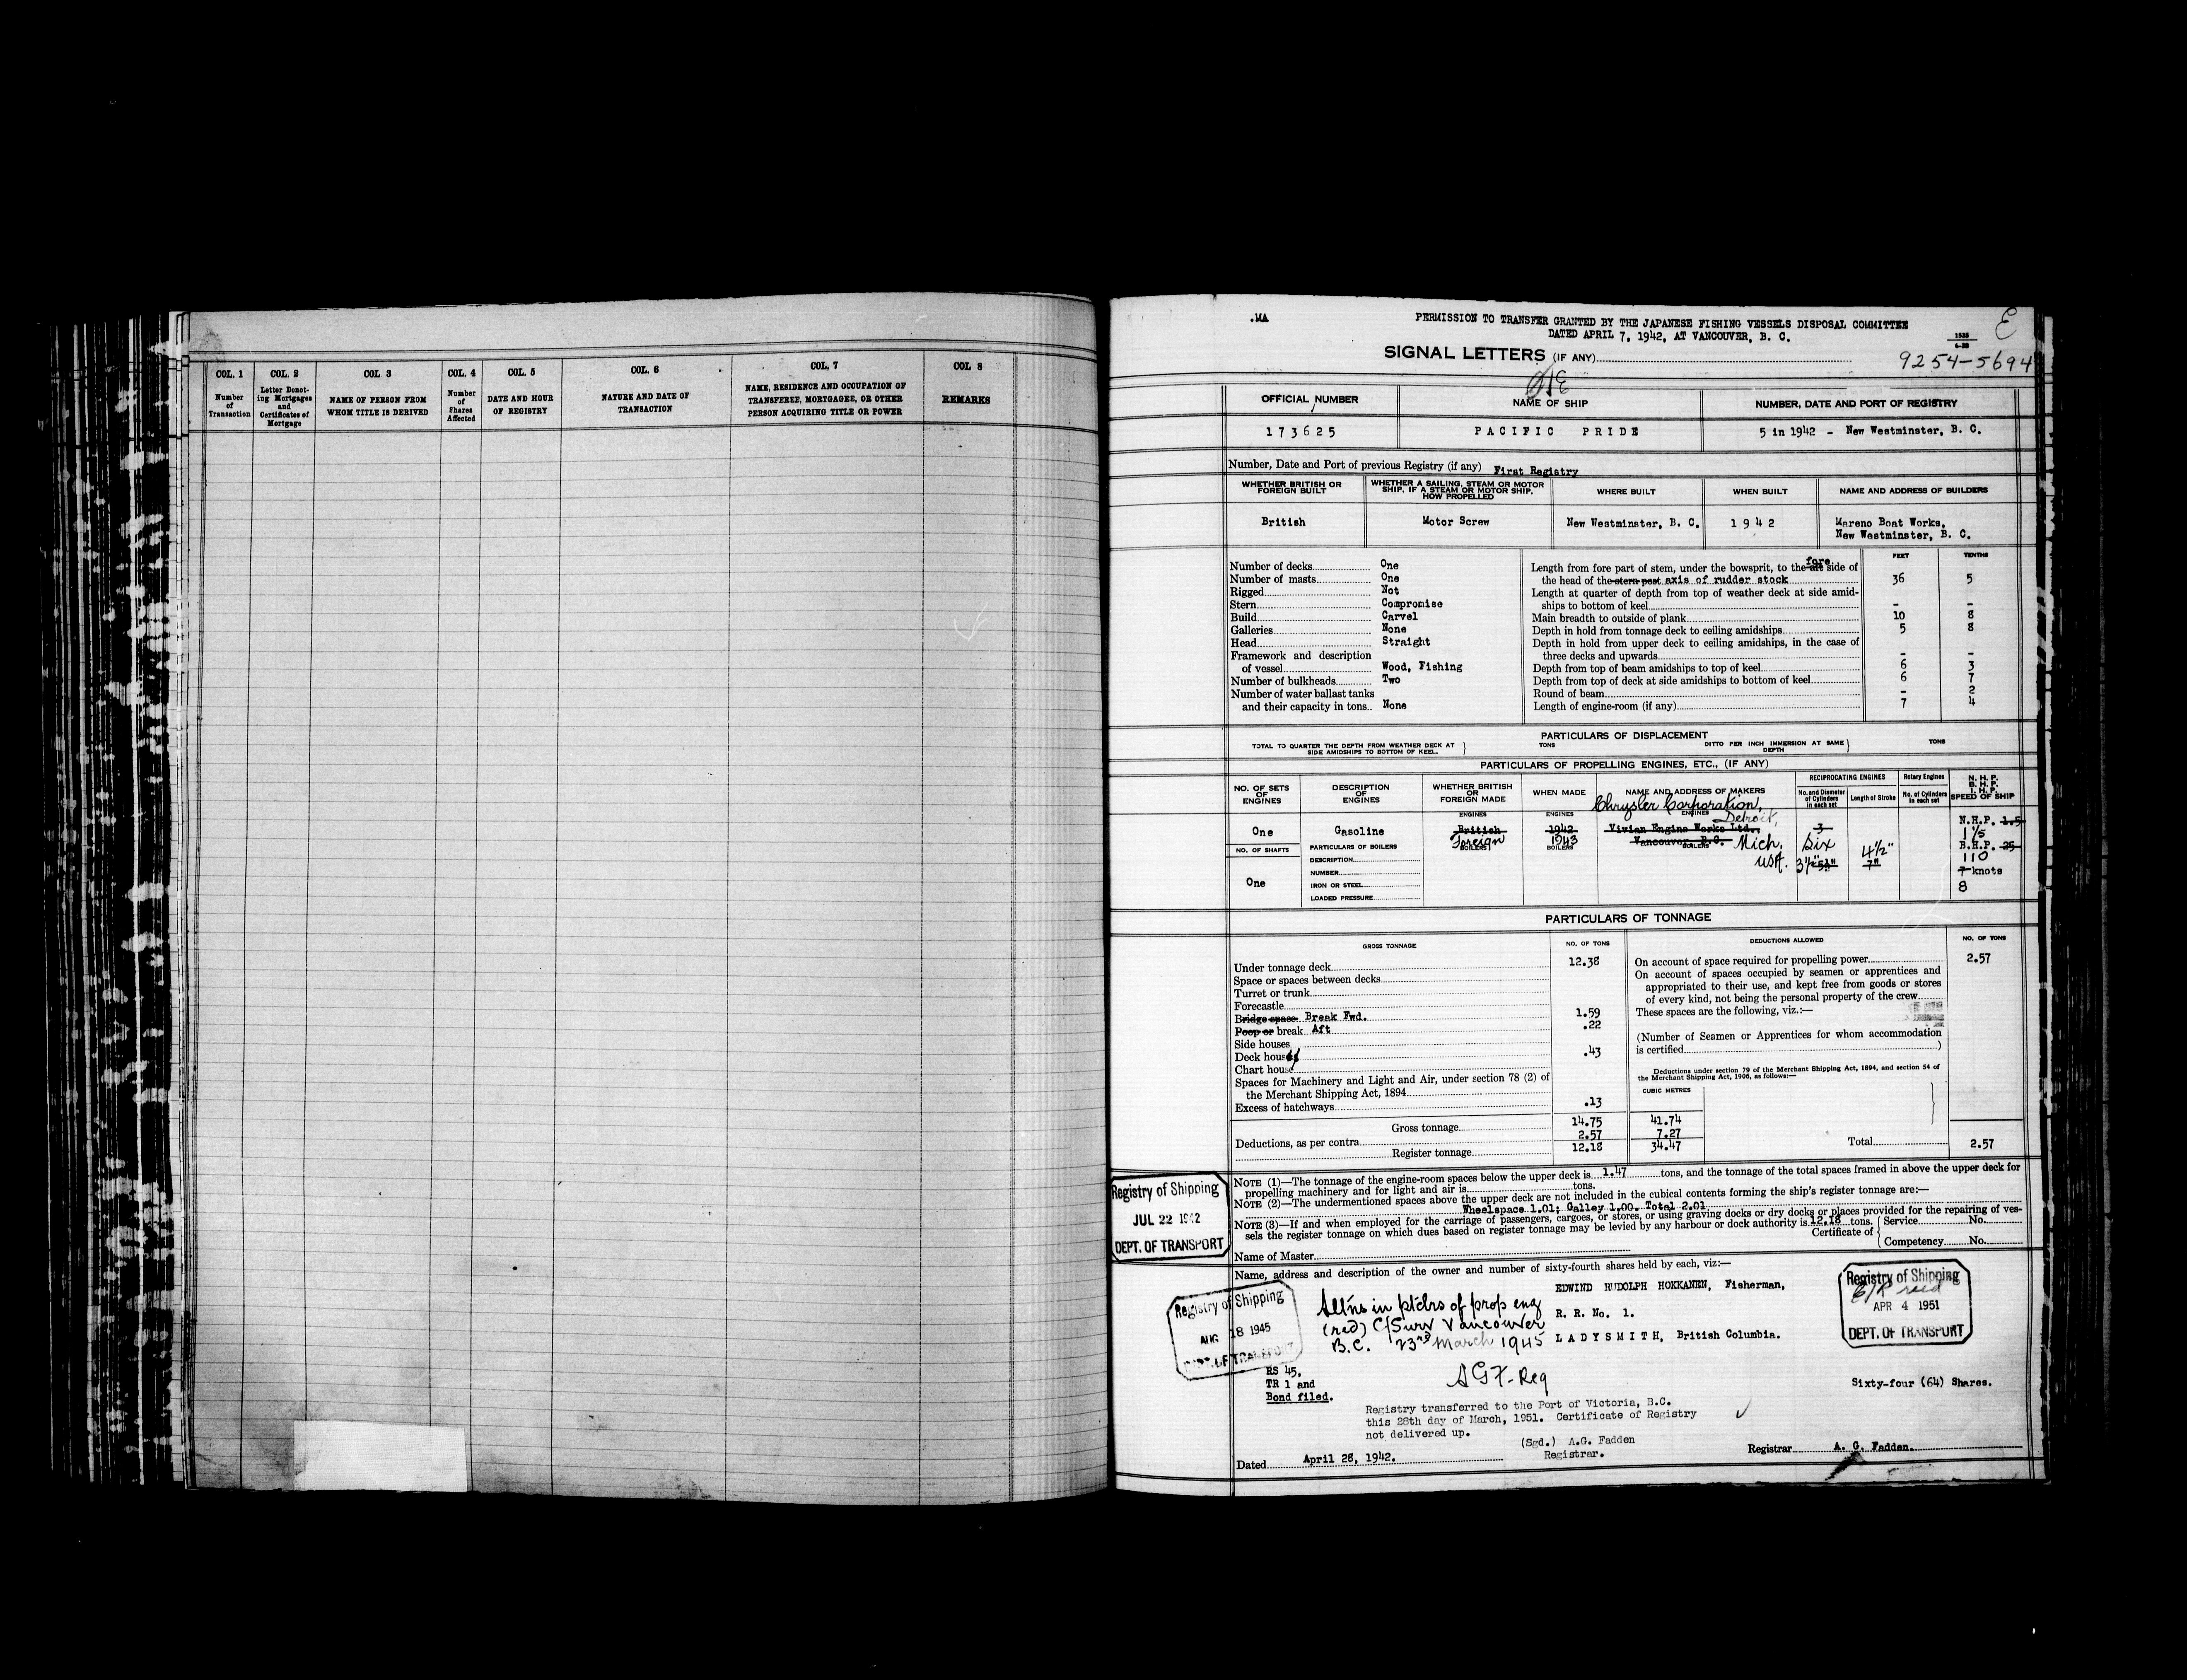 COL. 1
Number
of
Transaction
COL. 2
Letter Denot-
ing Mortgages
and
Certificates of
Mortgage
COL. 3
NAME OF PERSON FROM
WHOM TITLE IS DERIVED
COL. 4
Number
of
Shares
Affected
COL. 5
DATE AND HOUR
OF REGISTRY
COL. 6
NATURE AND DATE OF
TRANSACTION
COL. 7
NAME, RESIDENCE AND OCCUPATION OF
TRANSFEREE, MORTGAGEE, OR OTHER
PERSON ACQUIRING TITLE OR POWER
COL 8
REMARKS
.MA
PERMISSION TO TRANSFER GRANTED BY THE JAPANESE FISHING VESSELS DISPOSAL COMMITTEE
DATED APRIL 7, 1942, AT VANCOUVER, B. C.
SIGNAL LETTERS (IF ANY)
9254-5694
OFFICIAL NUMBER
NAME OF SHIP
NUMBER, DATE AND PORT OF REGISTRY
173625
PACIFIC PRIDE
5 in 1942 - New Westminster, B. C.
Number, Date and Port of previous Registry (if any) First Registry
WHETHER BRITISH OR
FOREIGN BUILT
WHETHER A SAILING, STEAM OR MOTOR
SHIP, IF A STEAM OR MOTOR SHIP,
HOW PROPELLED
WHERE BUILT
WHEN BUILT
NAME AND ADDRESS OF BUILDERS
British
Motor Screw
New Westminster, B. C.
1942
Mareno Boat Works,
New Westminster, B. C.
FEET
TENTHS
Number of decks One
Number of masts One
Rigged Not
Stern Compromise
Build Carvel
Galleries None
Head Straight
Framework and description
of vessel Wood, Fishing
Number of bulkheads Two
Number of water ballast tanks
and their capacity in tons None
Length from fore part of stem, under the bowsprit, to the aft fore side of
the head of the stern post axis of rudder stock 36 5
Length at quarter of depth from top of weather deck at side amid-
ships to bottom of keel - -
Main breadth to outside of plank 10 8
Depth in hold from tonnage deck to ceiling amidships 5 8
Depth in hold from upper deck to ceiling amidships, in the case of
three decks and upwards - -
Depth from top of beam amidships to top of keel 6 3
Depth from top of deck at side amidships to bottom of keel 6 7
Round of beam - 2
Length of engine-room (if any) 7 4
PARTICULARS OF DISPLACEMENT
TOTAL TO QUARTER THE DEPTH FROM WEATHER DECK AT
SIDE AMIDSHIPS TO BOTTOM OF KEEL.
TONS
DITTO PER INCH IMMERSION AT SAME
DEPTH
TONS
PARTICULARS OF PROPELLING ENGINES, ETC., (IF ANY)
NO. OF SETS
OF
ENGINES
DESCRIPTION
OF
ENGINES
WHETHER BRITISH
OR
FOREIGN MADE
WHEN MADE
NAME AND ADDRESS OF MAKERS
RECIPROCATING ENGINES
No. and Diameter
of Cylinders
in each set
Length of Stroke
Rotary Engines
No. of Cylinders
in each set
N. H. P.
B. H. P.
I. H. P.
SPEED OF SHIP
Chrysler Corporation,
Detroit,
Mich.
USA.
One
Gasoline
ENGINES
British
Foreign
BOILERS
ENGINES
1942
1943
BOILERS
ENGINES
Vivian Engine Works Ltd.,
Vancouver, B.C.
BOILERS
3
Six
4½"
7"
N.H.P. 1.5
1 1/5
B.H.P. 25
110
7 knots
8
NO. OF SHAFTS
One
PARTICULARS OF BOILERS
DESCRIPTION
NUMBER
IRON OR STEEL
LOADED PRESSURE
PARTICULARS OF TONNAGE
GROSS TONNAGE
NO. OF TONS
DEDUCTIONS ALLOWED
NO. OF TONS
Under tonnage deck 12.38
Space or spaces between decks
Turret or trunk
Forecastle
Bridge space Break Fwd. 1.59
Poop or break Aft .22
Side houses
Deck house .43
Chart house
Spaces for Machinery and Light and Air, under section 78 (2) of
the Merchant Shipping Act, 1894
Excess of hatchways .13
Gross tonnage 14.75 41.74
Deductions, as per contra 2.57 7.27
Register tonnage 12.18 34.47
On account of space required for propelling power 2.57
On account of spaces occupied by seamen or apprentices and
appropriated to their use, and kept free from goods or stores
of every kind, not being the personal property of the crew
These spaces are the following, viz.:—
(Number of Seamen or Apprentices for whom accommodation
is certified )
Deductions under section 79 of the Merchant Shipping Act, 1894, and section 54 of
the Merchant Shipping Act, 1906, as follows:—
CUBIC METRES
Total 2.57
NOTE (1)—The tonnage of the engine-room spaces below the upper deck is 1.47 tons, and the tonnage of the total spaces framed in above the upper deck for
propelling machinery and for light and air is tons.
NOTE (2)—The undermentioned spaces above the upper deck are not included in the cubical contents forming the ship's register tonnage are:—
Wheelspace 1.01; Galley 1.00. Total 2.01
NOTE (3)—If and when employed for the carriage of passengers, cargoes, or stores, or using graving docks or dry docks or places provided for the repairing of ves-
sels the register tonnage on which dues based on register tonnage may be levied by any harbour or dock authority is 12.18 tons.
Certificate of
Service No.
Competency No.
Name of Master
Registry of Shipping
JUL 22 1942
DEPT. OF TRANSPORT
Name, address and description of the owner and number of sixty-fourth shares held by each, viz:—
EDWIND RUDOLPH HOKKANEN, Fisherman,
R. R. No. 1.
LADYSMITH, British Columbia.
Registry of Shipping
AUG 18 1945
DEPT. OF TRANSPORT
Altns in ptclrs of prop eng
(red) C/Surv Vancouver
B.C. 23rd March 1945
AGF-Reg
Registry of Shipping
C/R recd
APR 4 1951
DEPT. OF TRANSPORT
RS 45,
TR 1 and
Bond filed.
Sixty-four (64) Shares.
Registry transferred to the Port of Victoria, B.C.
this 28th day of March, 1951. Certificate of Registry
not delivered up.
(Sgd.) A.G. Fadden
Registrar.
Dated April 28, 1942.
Registrar A. G. Fadden.